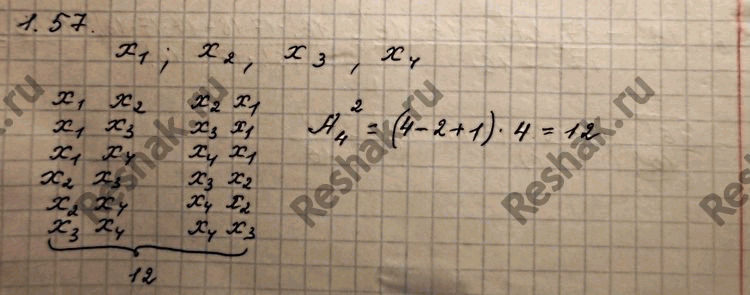 1.57.
x₁; x₂, x₃, x₄
x₁ x₂ x₂ x₁
x₁ x₃ x₃ x₁
x₁ x₄ x₄ x₁
x₂ x₃ x₃ x₂
x₂ x₄ x₄ x₂
x₃ x₄ x₄ x₃
12
A₄² = (4-2+1)·4 = 12
Reshak.ru
Reshak.ru
Reshak.ru
Reshak.ru
Reshak.ru